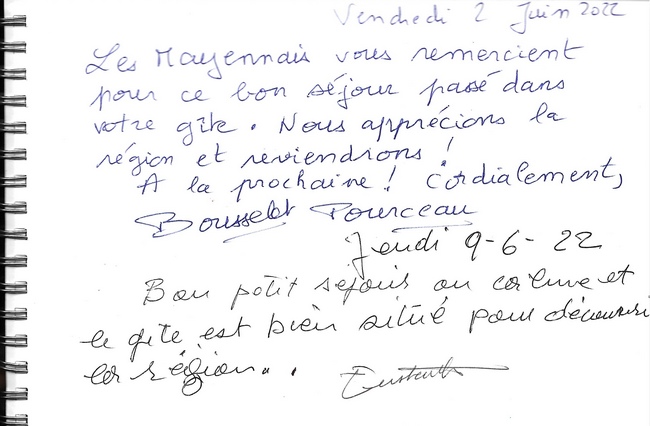 Vendredi 2 Juin 2022
Les Mayennais vous remercient
pour ce bon séjour passé dans
votre gîte. Nous apprécions la
région et reviendrons !
A la prochaine ! Cordialement,
Bousselet Pourceau
Jeudi 9-6-22
Bon petit sejour au calme et
le gîte est bien situé pour découvrir
la région..